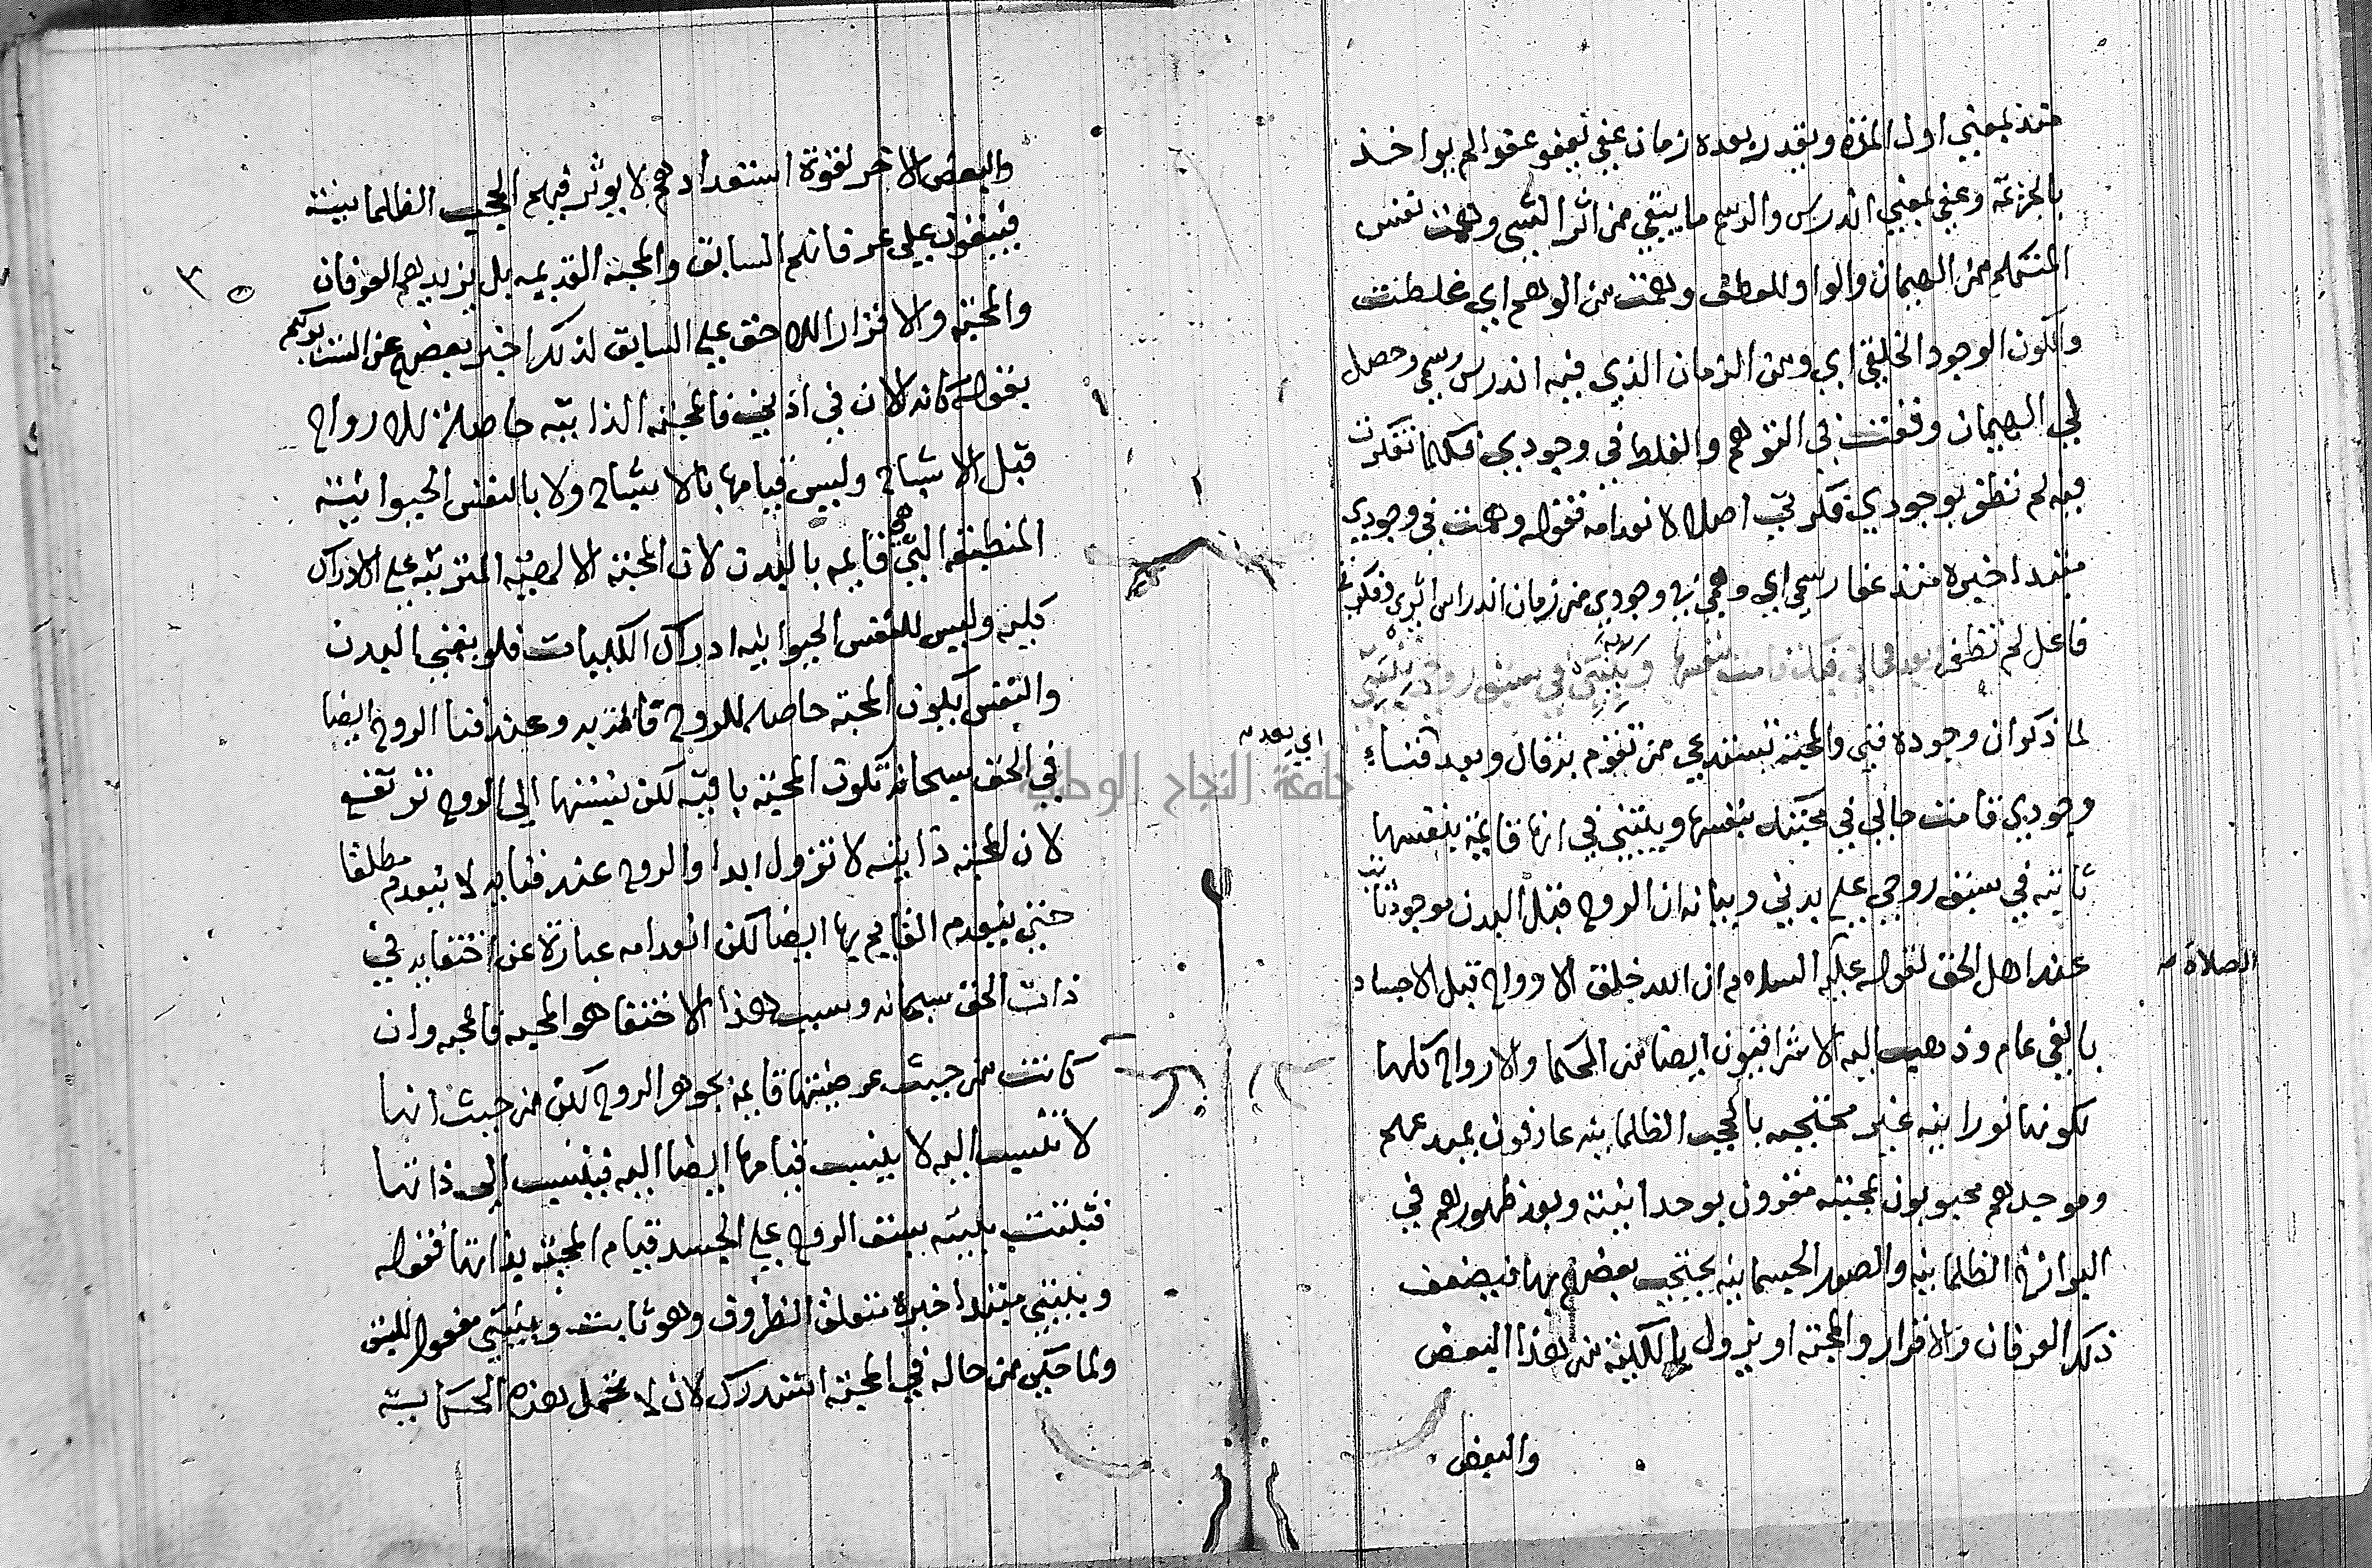 منذ بمعني اول المزة وبقدر بعده زمان عفي يعفو عفوا لم يواخذ
بالجزيمة وعفي بمعني اندرس والرسم ما يبقي من اثر الشي وهمت نفس
المتكلم من الهيمان والواو للعطف وهمت من الوهم اي غلطت
والكون الوجود الخليقي اي ومن الزمان الذي فيه اندرس رسمي وحصل
لي الهيمان وقفت في التوهم والغلط في وجودي فكلما تفكرت
فيه لم تظفر بوجودي فكرتي اصلا لانعدامه فقوله وهمت في وجودي
مبتدا خبره منذ عفا رسمي اي وهمي في وجودي من زمان اندراس اثري ففكرتي
فاعل لم تظفر وبعد فحالي فيك قامت بنفسها وبينتي في سبق روحي بنيتي
لما ذكر ان وجوده فني والمحبة تستدعي من تقوم به فقال وبعد فناء
اي بعد
وجودي قامت حالي في محبتك بنفسها وبينتي في انها قايمة بنفسها
ثابتة في سبق روحي علي بدني وبيانه ان الروح قبل البدن موجود ثابت
عند اهل الحق لقوله عليه السلام ان الله خلق الارواح قبل الاجساد
الصلاة
بالفي عام وذهب اليه الاشراقيون ايضا من الحكما والارواح كلها
لكونها نورانيه غير محتجبه بالحجب الظلمانيه عارفون بمبدعهم
وموجدهم محبوبون لمحبته مقرون بوحدانيته وبعد ظهورهم في
البرازخ الظلمانيه والصور الجسمانيه يحتجب بعضهم بها فيضعف
ذلك العرفان والاقرار والمحبة او يزول بالكلية من هذا البعض
والبعض
والبعض الاخر لقوة استعدادهم لا يوثر فيهم الحجب الظلمانية
فيبقون علي عرفانهم السابق والمحبة القديمه بل يزيدهم العرفان
والمحبة والاقرار اللاحق علي السابق لذلك اخبر بعضهم عن الست بربكم
بقوله كانه الان في اذني فالمحبة الذاتية حاصلة للارواح
قبل الاشباح وليس قيامها بالاشباح ولا بالنفس الحيوانية
المنطبعة التي هي قايمه بالبدن لان المحبة الالهية المترتبه علي الادراك
كليه وليس للنفس الحيوانيه ادراك الكليات فلو يفني البدن
والنفس يكون المحبة حاصله للروح قايمة به وعند فنا الروح ايضا
في الحق سبحانه تكون المحبة باقية لكن نسبتها الي الروح ترتفع
لان المحبة ذاتية لا تزول ابدا والروح عند فنايه لا ينعدم مطلقا
حتي ينعدم القايم بها ايضا لكن انعدامه عبارة عن اختفايه في
ذات الحق سبحانه وسبب هذا الاختفا هو المحبه فالمحبه وان
كانت من حيث عرضيتها قايمة بجوهر الروح لكن من حيث انها
لا تنسب اليه لا ينسب قيامها ايضا اليه فينسب الي ذاتها
فثبتت ببينه بسبق الروح علي الجسد قيام المحبة بذاتها فقوله
وبينتي مبتدا خبره متعلق الظروف وهو ثابت وبنيتي مفعول للسبق
ولما حكي من حاله في المحبة استدرك لان لا تحمل هذه الحكاية